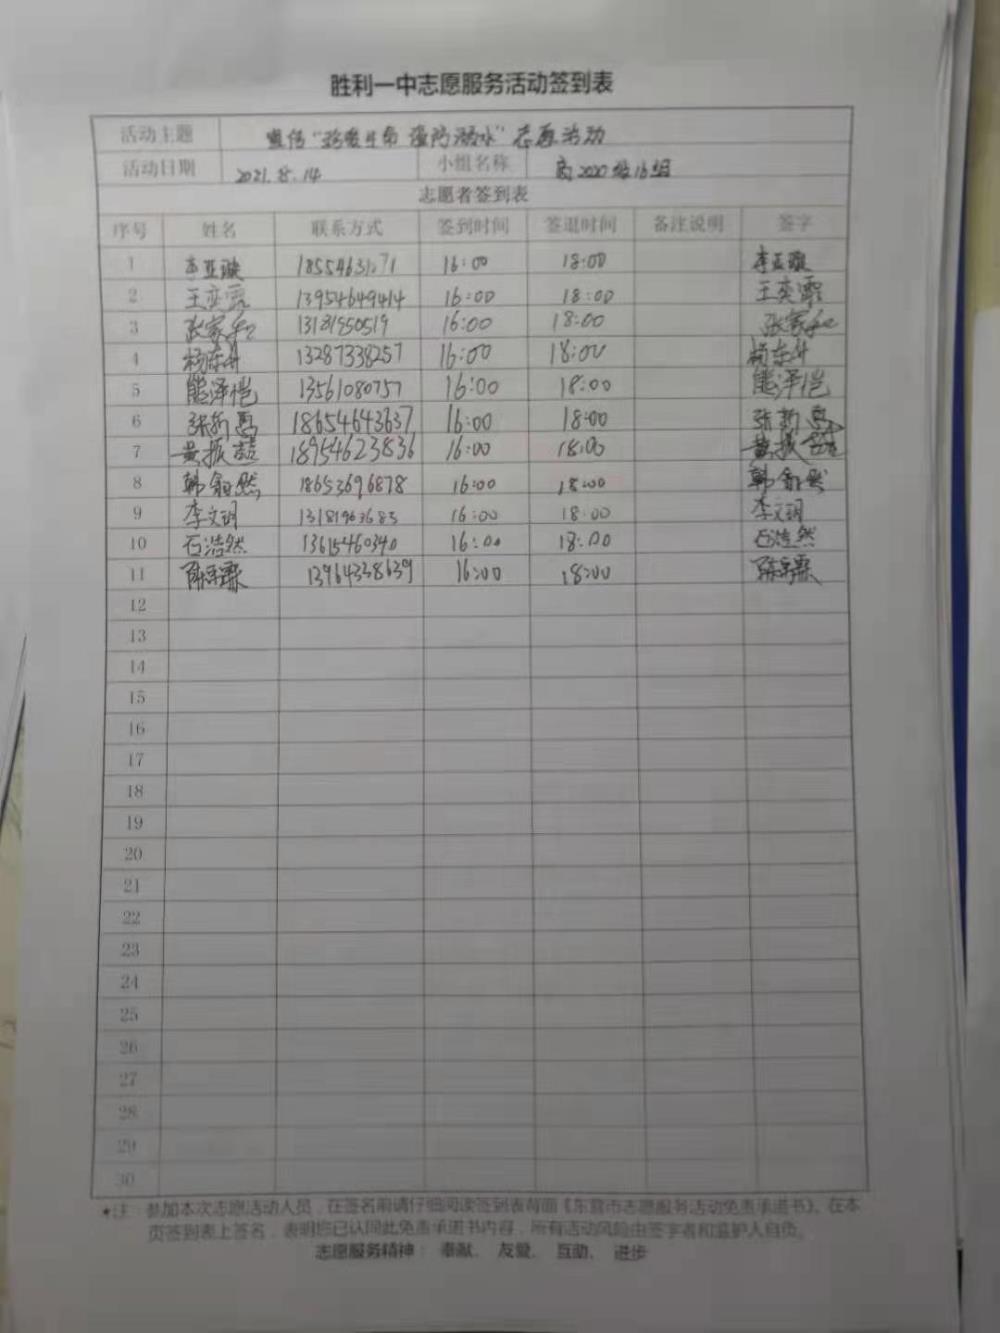 胜利一中志愿服务活动签到表
活动主题 宣传“珍爱生命 谨防溺水”志愿活动
活动日期 2021.8.14 小组名称 高2020级16组
志愿者签到表
序号 姓名 联系方式 签到时间 签退时间 备注说明 签字
1 李亚璇 16:00 18:00 李亚璇
2 王奕霏 13954649414 16:00 18:00 王奕霏
3 张家和 13181550519 16:00 18:00 张家和
4 杨东升 13287338257 16:00 18:00 杨东升
5 熊泽恺 13561080757 16:00 18:00 熊泽恺
6 张新禹 18654643637 16:00 18:00 张新禹
7 黄振喆 18954623836 16:00 18:00 黄振喆
8 韩钰然 18653696878 16:00 18:00 韩钰然
9 李文玥 13181963683 16:00 18:00 李文玥
10 石浩然 13615460340 16:00 18:00 石浩然
11 陈霖 13964338639 16:00 18:00 陈霖
12
13
14
15
16
17
18
19
20
21
22
23
24
25
26
27
28
29
30
*注：参加本次志愿活动人员，在签名前请仔细阅读签到表背面《东营市志愿服务活动免责承诺书》，在本
页签到表上签名，表明您已认同此免责承诺书内容，所有活动风险由签字者和监护人自负。
志愿服务精神：奉献、友爱、互助、进步